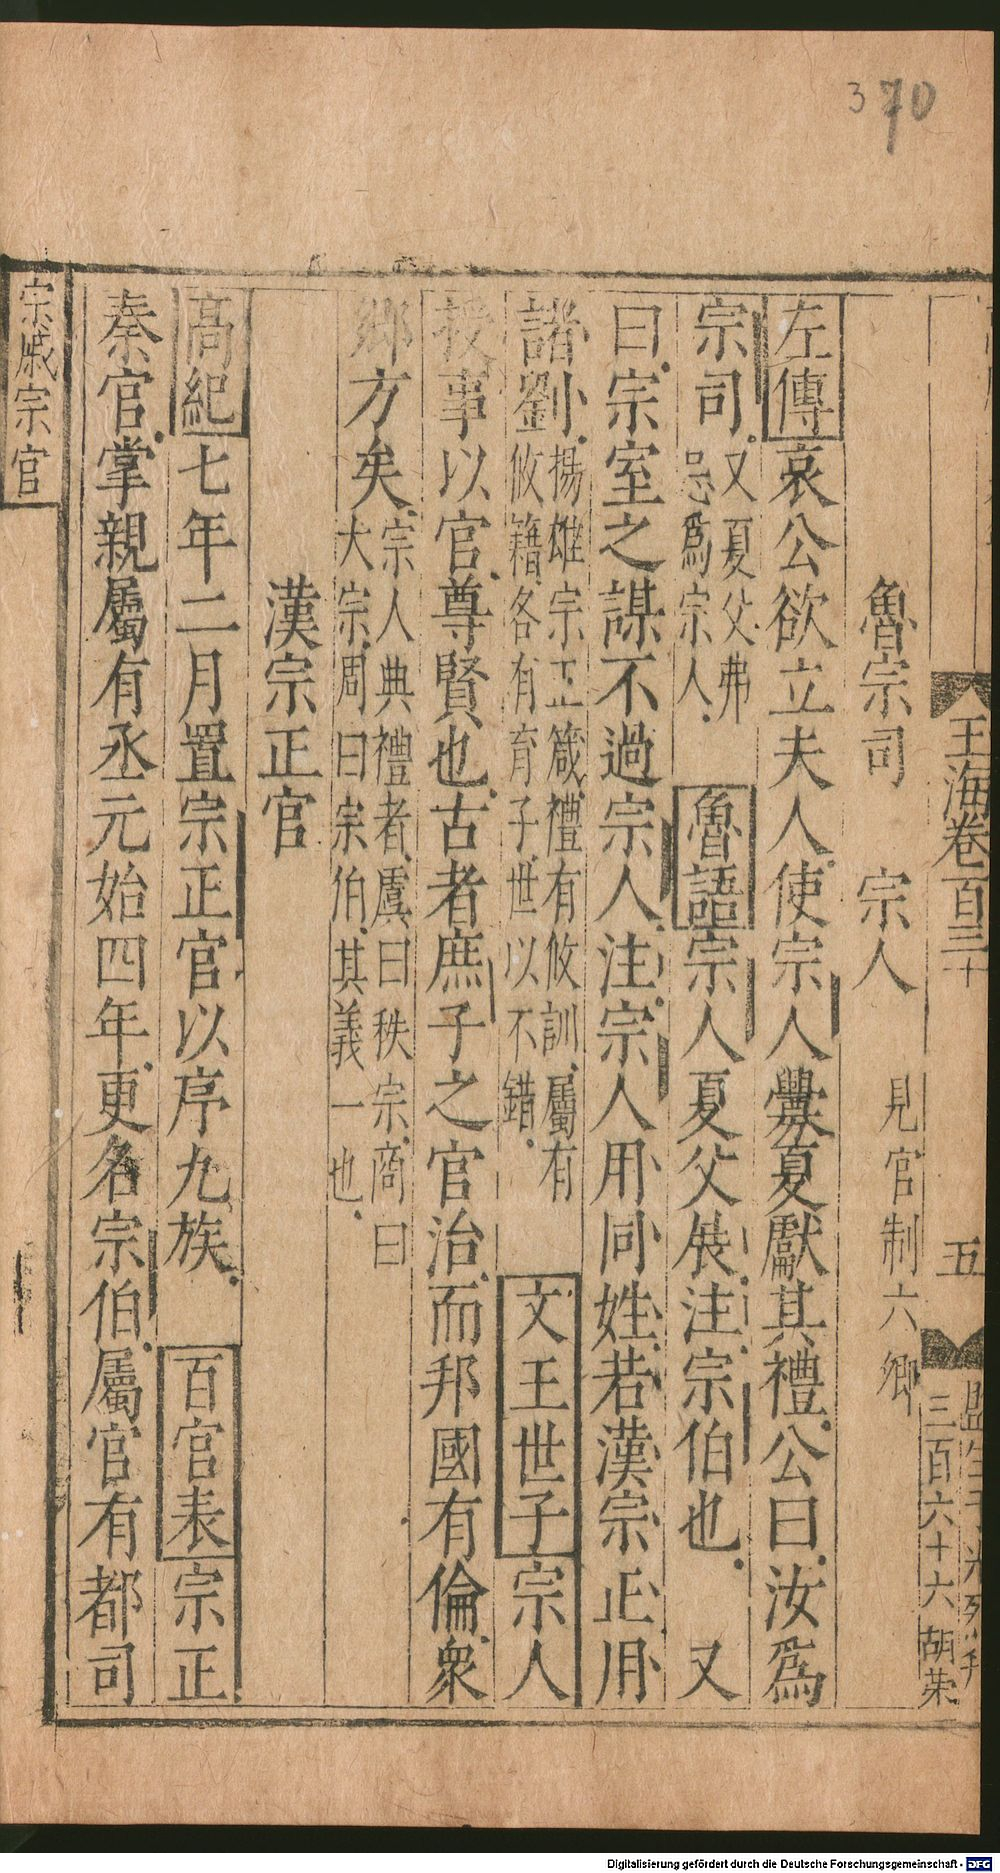 370
王海卷百三十
五
三百六十六
胡荣
魯宗司 宗人 見官制六卿
左傳哀公欲立夫人使宗人釁夏獻其禮公曰汝爲
宗司又夏父弗忌爲宗人 魯語宗人夏父展注宗伯也 又
曰宗室之謀不過宗人注宗人用同姓若漢宗正用
諸劉揚雄宗正箴禮有攸訓屬有攸籍各有育子世以不錯 文王世子宗人
授事以官尊賢也古者庶子之官治而邦國有倫衆
鄉方矣宗人典禮者虞曰秩宗商曰大宗周曰宗伯其義一也
漢宗正官
高紀七年二月置宗正官以序九族 百官表宗正
秦官掌親屬有丞元始四年更名宗伯屬官有都司
宗戚宗官
Digitalisierung gefördert durch die Deutsche Forschungsgemeinschaft - DFG